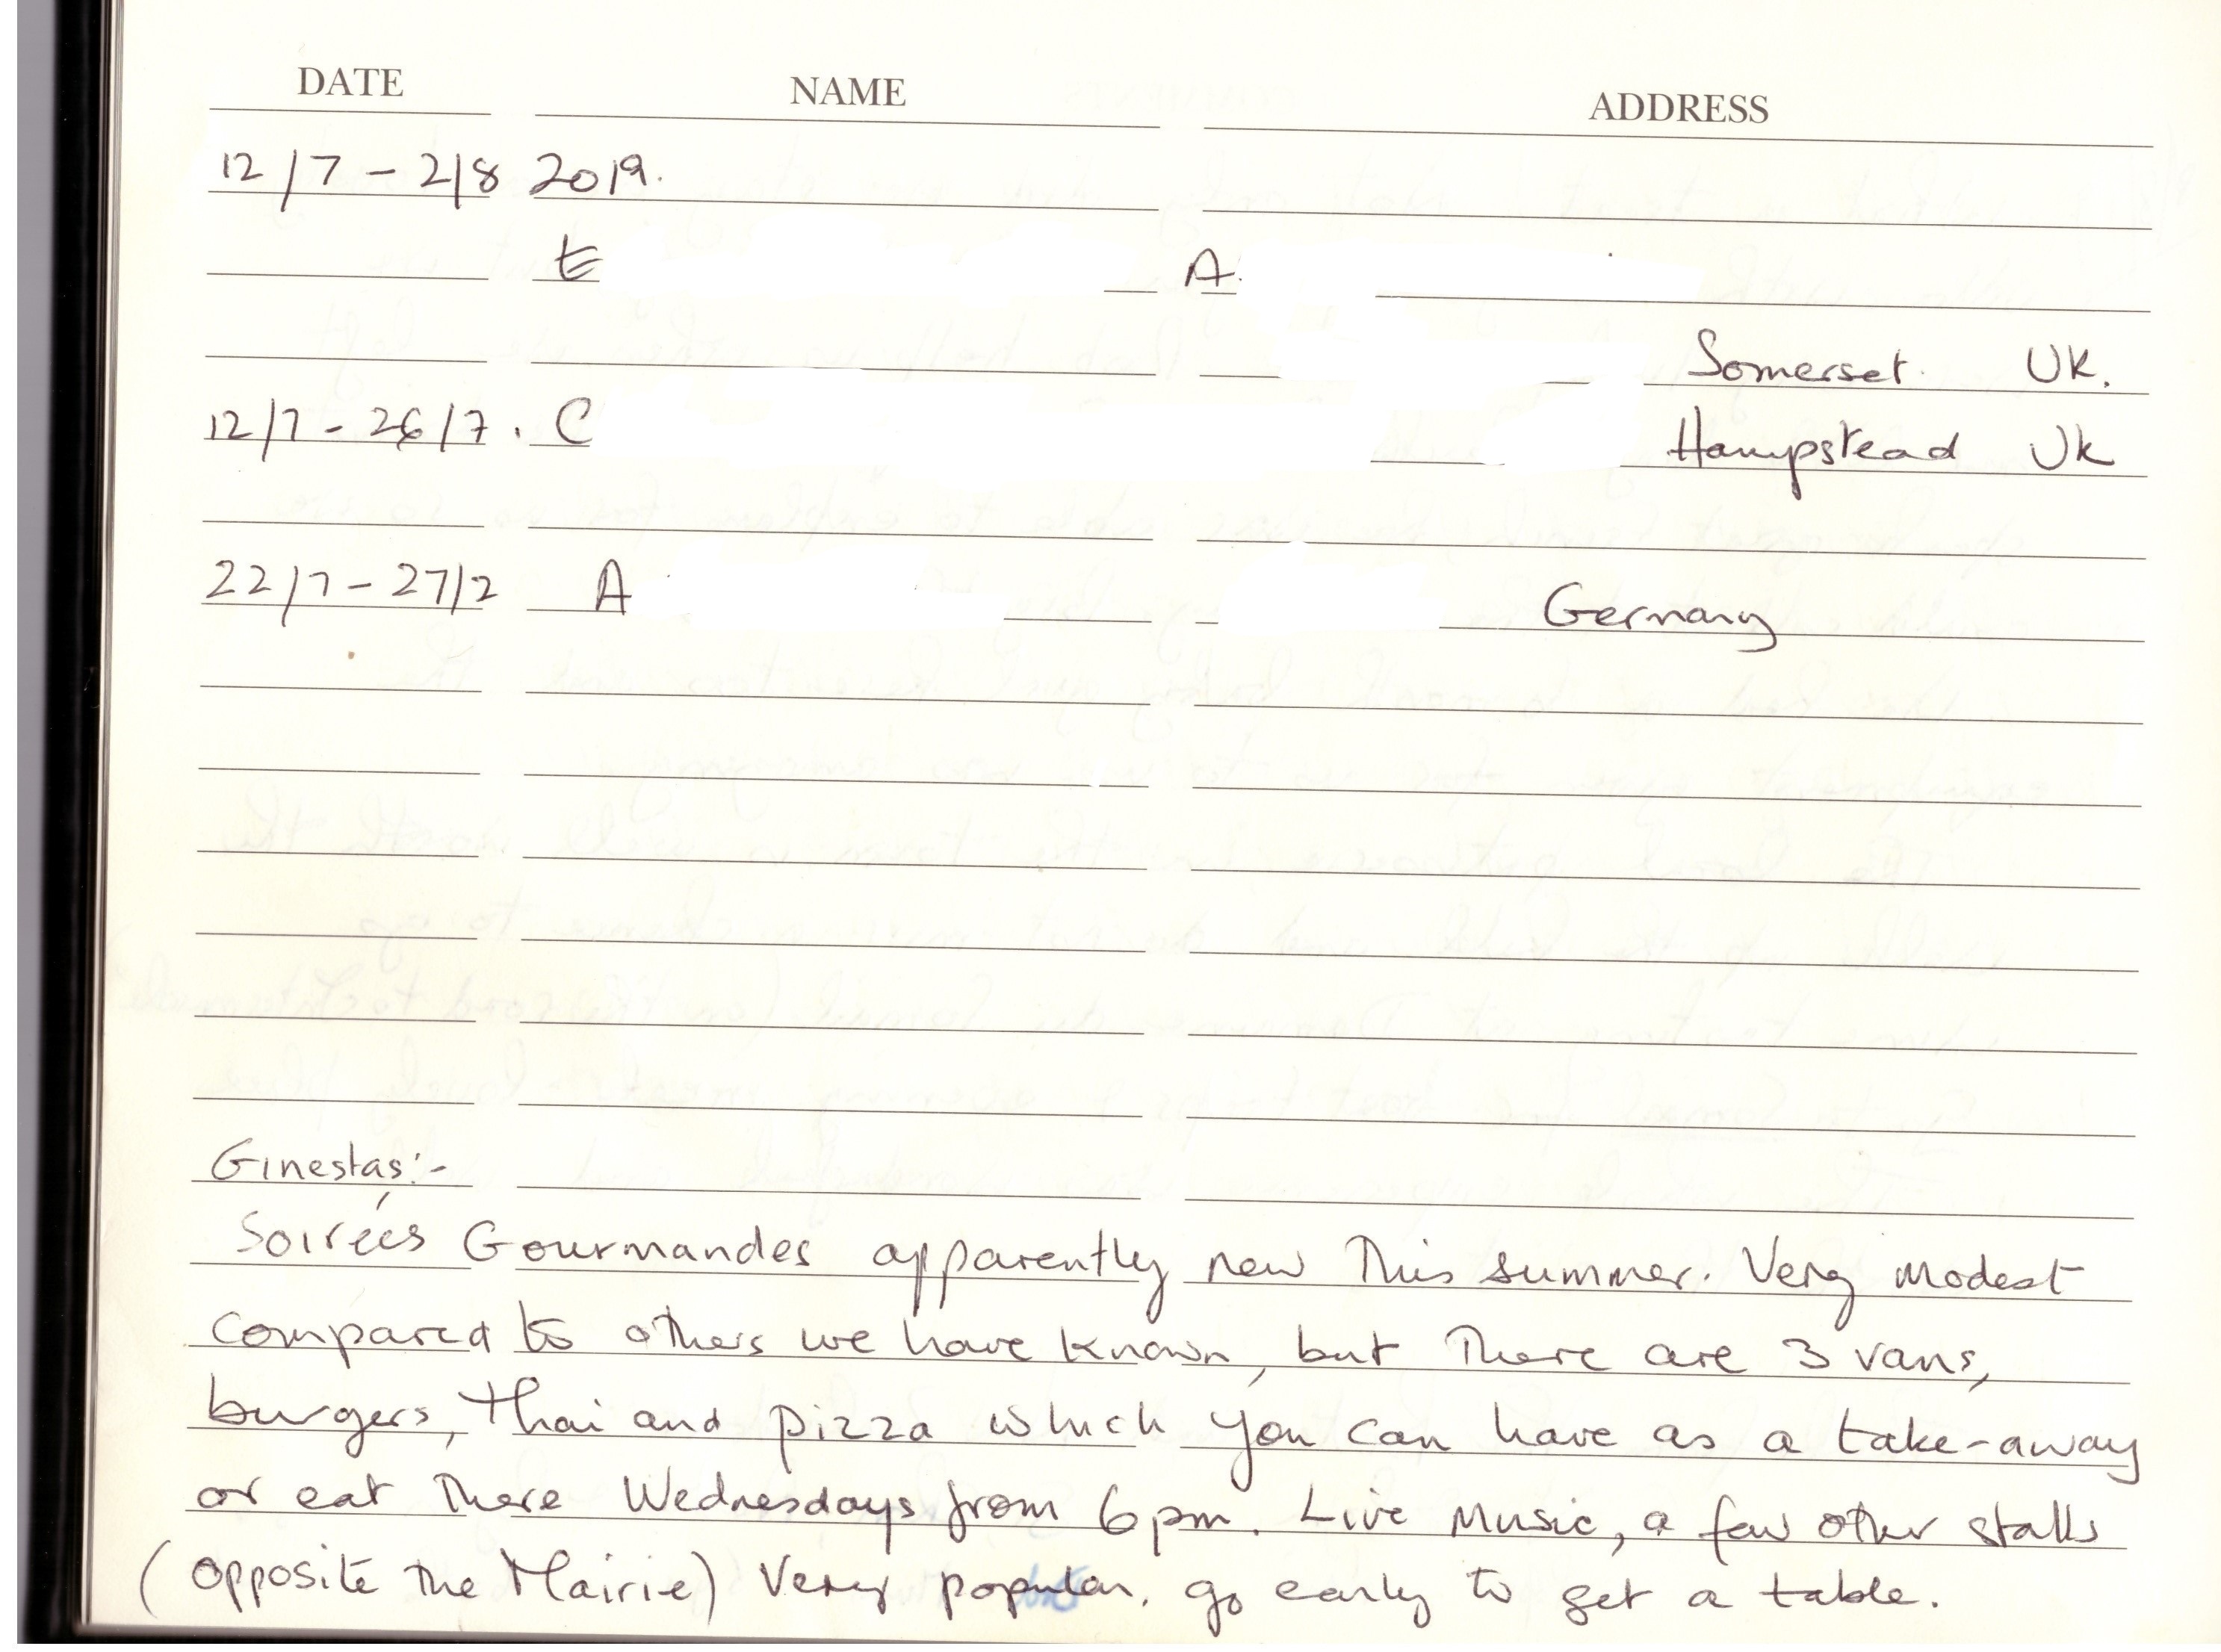 DATE NAME ADDRESS
12/7 - 2/8 2019.
E A.
Somerset. UK.
12/7 - 26/7. C Hampstead Uk
22/7 - 27/7 A Germany
Ginestas:-
Soirées Gourmandes apparently new This summer. Very modest
compared to others we have known, but There are 3 vans,
burgers, Thai and pizza which you can have as a take-away
or eat There Wednesdays from 6pm. Live Music, a few other stalls
(opposite the Mairie) Very popular. go early to get a table.